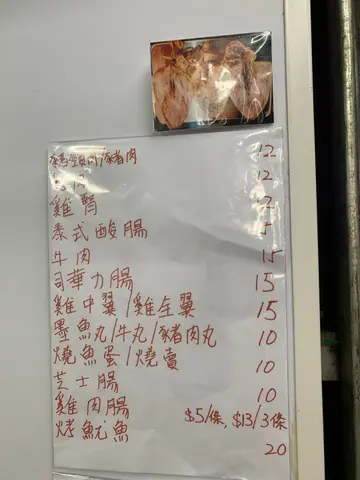 豬頸肉/豬肉 12
肉 12
雞腎 12
泰式酸腸
牛肉 15
司華力腸 15
雞中翼/雞全翼 15
墨魚丸/牛丸/豬肉丸 10
燒魚蛋/燒賣 10
芝士腸 10
雞肉腸 $5/條, $13/3條
烤魷魚 20